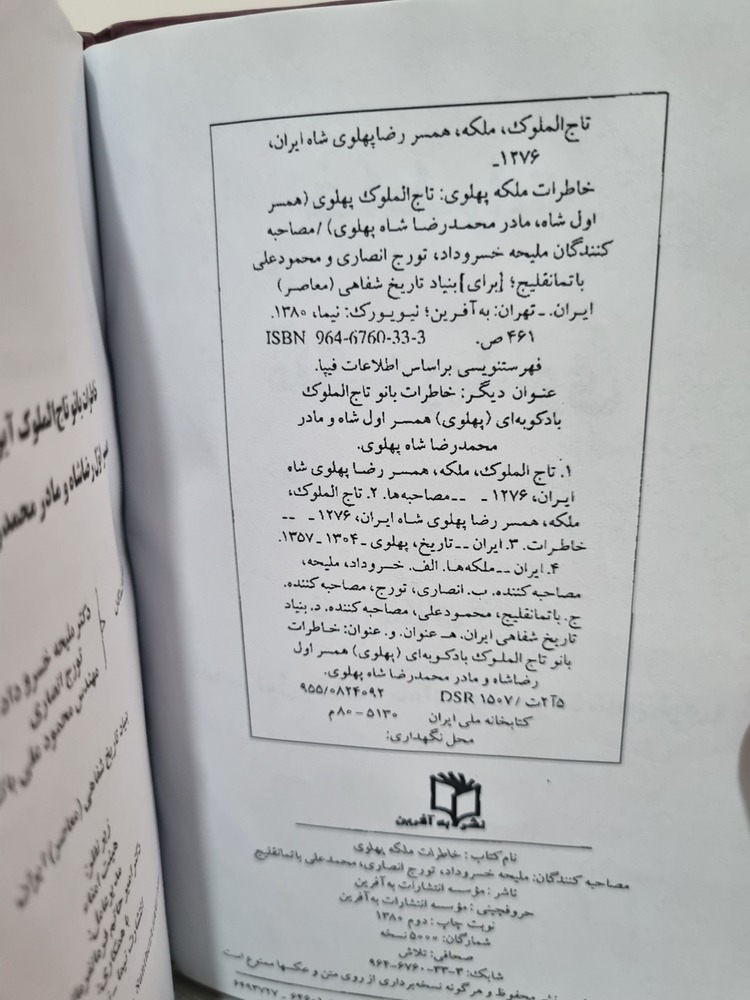 تاج‌الملوک، ملکه، همسر رضاپهلوی شاه ایران،
۱۲۷۶ـ
خاطرات ملکه پهلوی: تاج‌الملوک پهلوی (همسر
اول شاه، مادر محمدرضا شاه پهلوی) /مصاحبه
کنندگان ملیحه خسروداد، تورج انصاری و محمودعلی
باتمانقلیچ؛ [برای] بنیاد تاریخ شفاهی (معاصر)
ایران. ـ تهران: به‌آفرین؛ نیویورک: نیما، ۱۳۸۰.
۴۶۱ ص. ISBN 964-6760-33-3
فهرستنویسی براساس اطلاعات فیپا.
عنوان دیگر: خاطرات بانو تاج‌الملوک
بادکوبه‌ای (پهلوی) همسر اول شاه و مادر
محمدرضا شاه پهلوی.
۱. تاج الملوک، ملکه، همسر رضا پهلوی شاه
ایران، ۱۲۷۶ ـ ــ مصاحبه‌ها. ۲. تاج الملوک،
ملکه، همسر رضا پهلوی شاه ایران، ۱۲۷۶ ـ ــ
خاطرات. ۳. ایران ــ تاریخ، پهلوی ـ ۱۳۰۴ ـ ۱۳۵۷.
۴. ایران ــ ملکه‌ها. الف. خسروداد، ملیحه،
مصاحبه‌کننده. ب. انصاری، تورج، مصاحبه‌کننده.
ج. باتمانقلیچ، محمودعلی، مصاحبه‌کننده. د. بنیاد
تاریخ شفاهی ایران. هـ. عنوان. و. عنوان: خاطرات
بانو تاج الملوک بادکوبه‌ای (پهلوی) همسر اول
رضاشاه و مادر محمدرضا شاه پهلوی.
۵آ۲ت / DSR ۱۵۰۷ ۹۵۵/۰۸۲۴۰۹۲
کتابخانه ملی ایران ۵۱۳۰ – ۸۰م
محل نگهداری:
نشر به آفرین
نام کتاب: خاطرات ملکه پهلوی
مصاحبه کنندگان: ملیحه خسروداد، تورج انصاری، محمدعلی باتمانقلیچ
ناشر: مؤسسه انتشارات به‌آفرین
حروفچینی: مؤسسه انتشارات به‌آفرین
نوبت چاپ: دوم ۱۳۸۰
شمارگان: ۵۰۰۰ نسخه
صحافی: تلاش
شابک: ۳-۳۳-۶۷۶۰-۹۶۴
محفوظ و هرگونه نسخه‌برداری از روی متن و عکسها ممنوع است
دکتر ملیحه خسروداد
تورج انصاری
مهندس محمود علی
بنیاد تاریخ شفاهی (معاصر) ایران